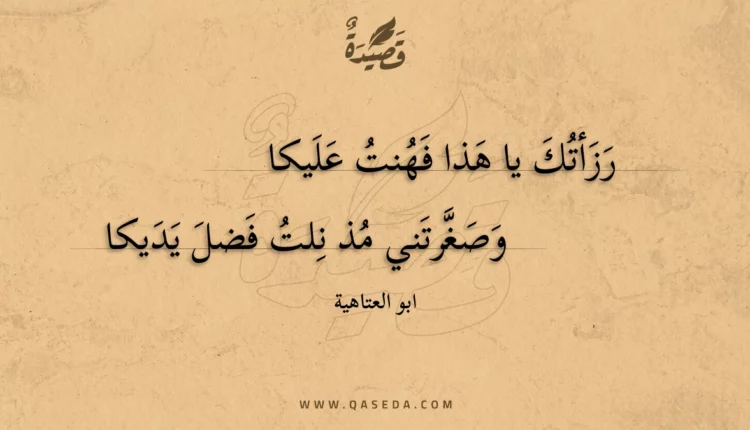 قَصِيْدَةٌ
رَزَأتُكَ يا هَذا فَهُنتُ عَلَيكا
وَصَغَّرتَني مُذ نِلتُ فَضلَ يَدَيكا
ابو العتاهية
WWW.QASEDA.COM